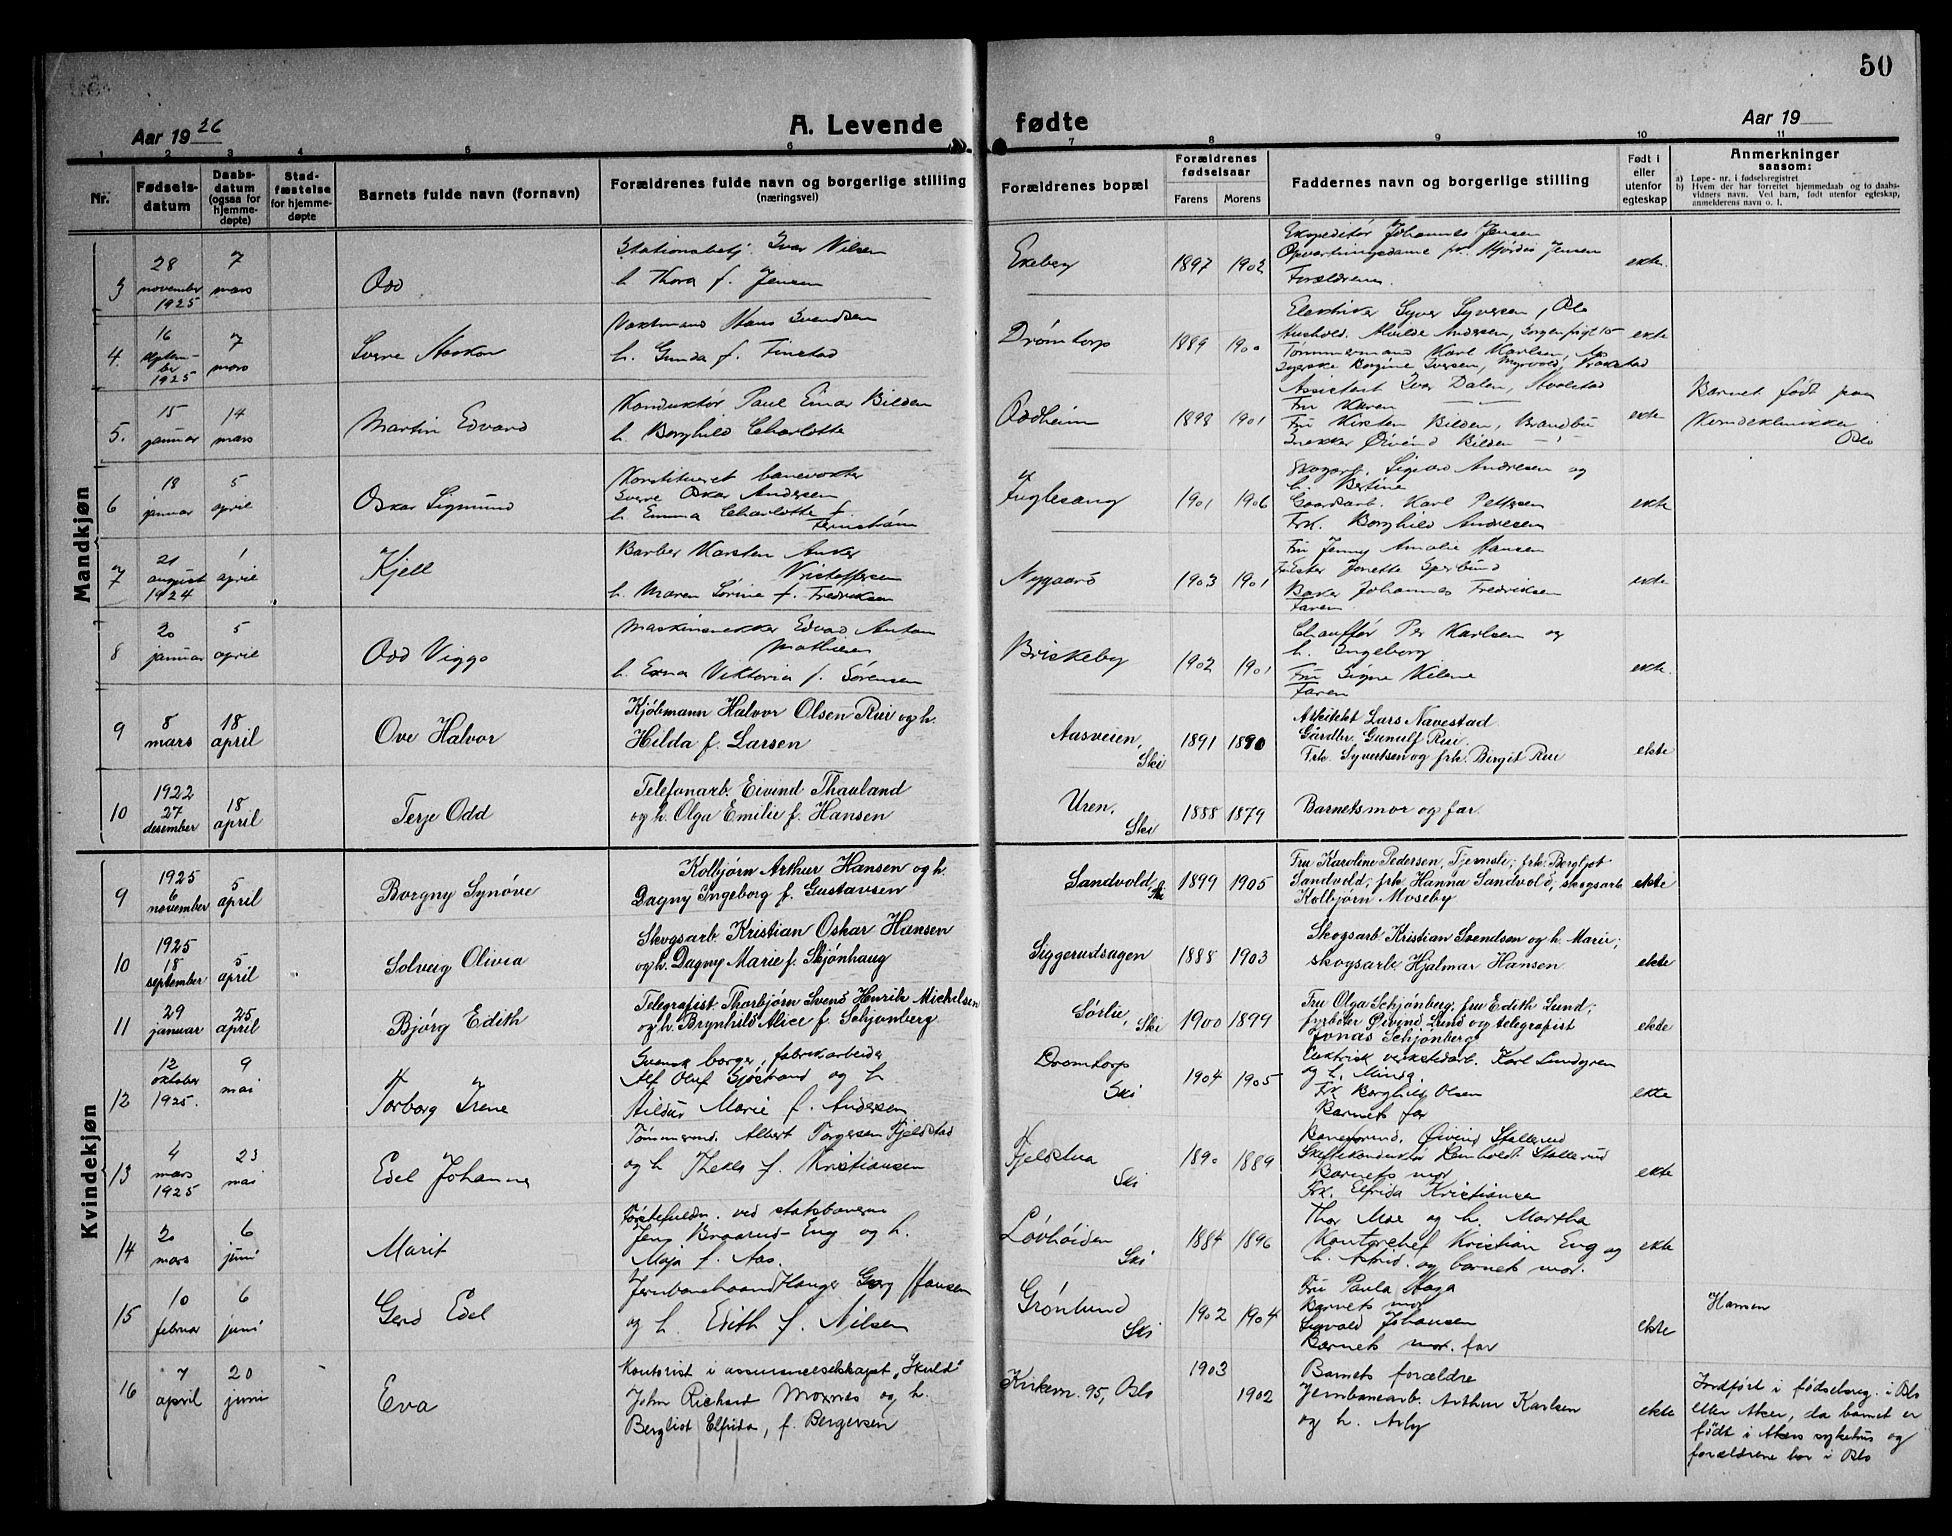 50
Aar 1926
A. Levende fødte
Aar 19
1 2 3 4 5 6 7 8 9 10 11
Nr.
Fødsels-
datum
Daabs-
datum
(ogsaa for
hjemme-
døpte)
Stad-
fæstelse
for hjemme-
døpte
Barnets fulde navn (fornavn)
Forældrenes fulde navn og borgerlige stilling
(næringsvei)
Forældrenes bopæl
Forældrenes
fødselsaar
Farens Morens
Faddernes navn og borgerlige stilling
Født i
eller
utenfor
egteskap
Anmerkninger
saasom:
a) Løpe-nr. i fødselsregistret
b) Hvem der har forrettet hjemmedaab og to daabs-
vidners navn. Ved barn, født utenfor egteskap,
anmelderens navn o. l.
Mandkjøn
3
28
november
1925
7
mars
Odd
Stationsbetj. Ivar Nilsen
h. Thora f. Jensen
Ekeberg
1897 1902
Ekspeditør Johannes Jensen
Opvartningsdame frk. Hjørdis Jensen
Forældrene
ekte
4.
16
septem-
ber
1925
7
mars
Sverre Haakon
Vaktmand Hans Svendsen
h. Gunda f. Finstad
Drømtorp
1889 1900
Elektriker Syver Syversen, Oslo
Hushold. Alvilde Andersen, Sorgenfrigt 10
Tømmermand Karl Karlsen, Aas
Syerske Borgine Iversen, Myrvold, Kraakstad
ekte
5.
15
januar
14
mars
Martin Edvard
Konduktør Paul Einar Bilden
h. Borghild Charlotte
Oddheim
1898 1901
Assistent Ivar Dalen,
Fru Karen
Fru Kirsten Bilden, Brandbu
Snekker Øivind Bilden
ekte
Barnet født paa
Kvindeklinikken
Oslo
6
18
januar
5
april
Oskar Sigmund
Konstitueret banevokter
Sverre Oskar Andersen
h. Emma Charlotte f.
Fernstrøm
Fuglesang
1901 1906
Skogarb. Sigvard Andresen og
h. Bertine
Gaardsarb. Karl Pettersen
Frk. Borghild Andresen
ekte
7
21
august
1924
1
april
Kjell
Barber Karsten Anker
Kristoffersen
h. Maren Sørine f. Fredriksen
Nygaard
1903 1901
Fru Jenny Amalie Hansen
Fr. Ester Jonette Sperlund
Baker Johannes Fredriksen
Faren
ekte
8
20
januar
5
april
Odd Viggo
Maskinsnekker Edvard Anton
Mathisen
h. Erna Viktoria f. Sørensen
Briskeby
1902 1901
Chauffør Per Karlsen og
h. Ingeborg
Fru Signe Nilsen
Faren
ekte
9
8
mars
18
april
Ove Halvor
Kjøbmann Halvor Olsen Rui og h.
Hilda f. Larsen
Aasveien,
Ski
1891 1890
Arkitekt Lars Navestad
Gårdbr. Gunulf Rui.
Frk. Syvertsen og frk. Birgit Rui
ekte
10
1922
27
desember
18
april
Terje Odd
Telefonarb. Eivind Thauland
og h. Olga Emilie f. Hansen
Uren,
Ski
1888 1879
Barnets mor og far
Kvindekjøn
9
1925
6
november
5
april
Borgny Synøve
Kolbjørn Arthur Hansen og h.
Dagny Ingeborg f. Gustavsen
Sandvold
Ski
1899 1905
Fru Karoline Pedersen, Tjernsli; frk. Bergljot
Sandvold; frk. Hanna Sandvold, skogsarb
Kolbjørn Moseby
ekte
10
1925
18
september
5
april
Solveig Olivia
Skogsarb. Kristian Oskar Hansen
og h. Dagny Marie f. Skjønhaug
Siggerudsagen
1888 1903
Skogsarb Kristian Svendsen og h. Marie;
skogsarb Hjalmar Hansen
ekte
11
29
januar
25
april
Bjørg Edith
Telegrafist Thorbjørn Svend Henrik Michelsen
og h. Brynhild Alice f. Schjønberg
Sørlie,
Ski
1900 1899
Fru Olga Schjønberg, fru Edith Lund;
fyrbøter Øivind Lund og telegrafist
Jonas Schjønberg
ekte
12
12
oktober
1925.
9
mai
Torborg Irene
Svensk borger, fabrikarbeider
Alf Oluf Sjöstrand og h.
Hildur Marie f. Andersen
Drømtorp
Ski
1904 1905
Elektrisk verkstedarb. Karl Lundgren
og h. Minda
Frk Borghild Olsen
Barnets far
ekte
13
4
mars
1925
23
mai
Edel Johanne
Tømmermd. Albert Torgersen Fjeldstad
og h Thekla f. Kristiansen
Fjeldstua
Ski
1890 1889
Baneformd. Øivind Stallerud
Skiftekonduktør Reinholdt Stallerud
Barnets mor
Frk. Elfrida Kristiansen
ekte
14
20
mars
6
juni
Marit
Førstefuldm. ved statsbanerne
Jens Braarud-Eng og h.
Maja f. Aas.
Løvhøiden
Ski
1884 1896
Thor Moe og h. Martha
Kontorchef Kristian Eng og
h. Astrid. og barnets mor.
ekte
15
10
februar
6
juni
Gerd Edel
Jernbanehaandlanger Georg Hansen
og h. Edith f. Nilsen
Grønlund
Ski
1902 1904
Fru Paula Haga
Barnets mor
Sigvald Johansen
Barnets mor. far
ekte
Hansen
16
7
april
20
juni
Eva
Kontorist i assuranseselskapet "Skuld"
John Richard Moxnes og h.
Bergliot Elfrida, f. Bergersen
Kirkevn. 95, Oslo
1903
1902
Barnets forældre
Jernbanearb. Arthur Karlsen
og h. Asly
ekte
Indført i fødselsreg. i Oslo
eller Aker, da barnet er
født i Akers sykehus og
forældrene bor i Oslo